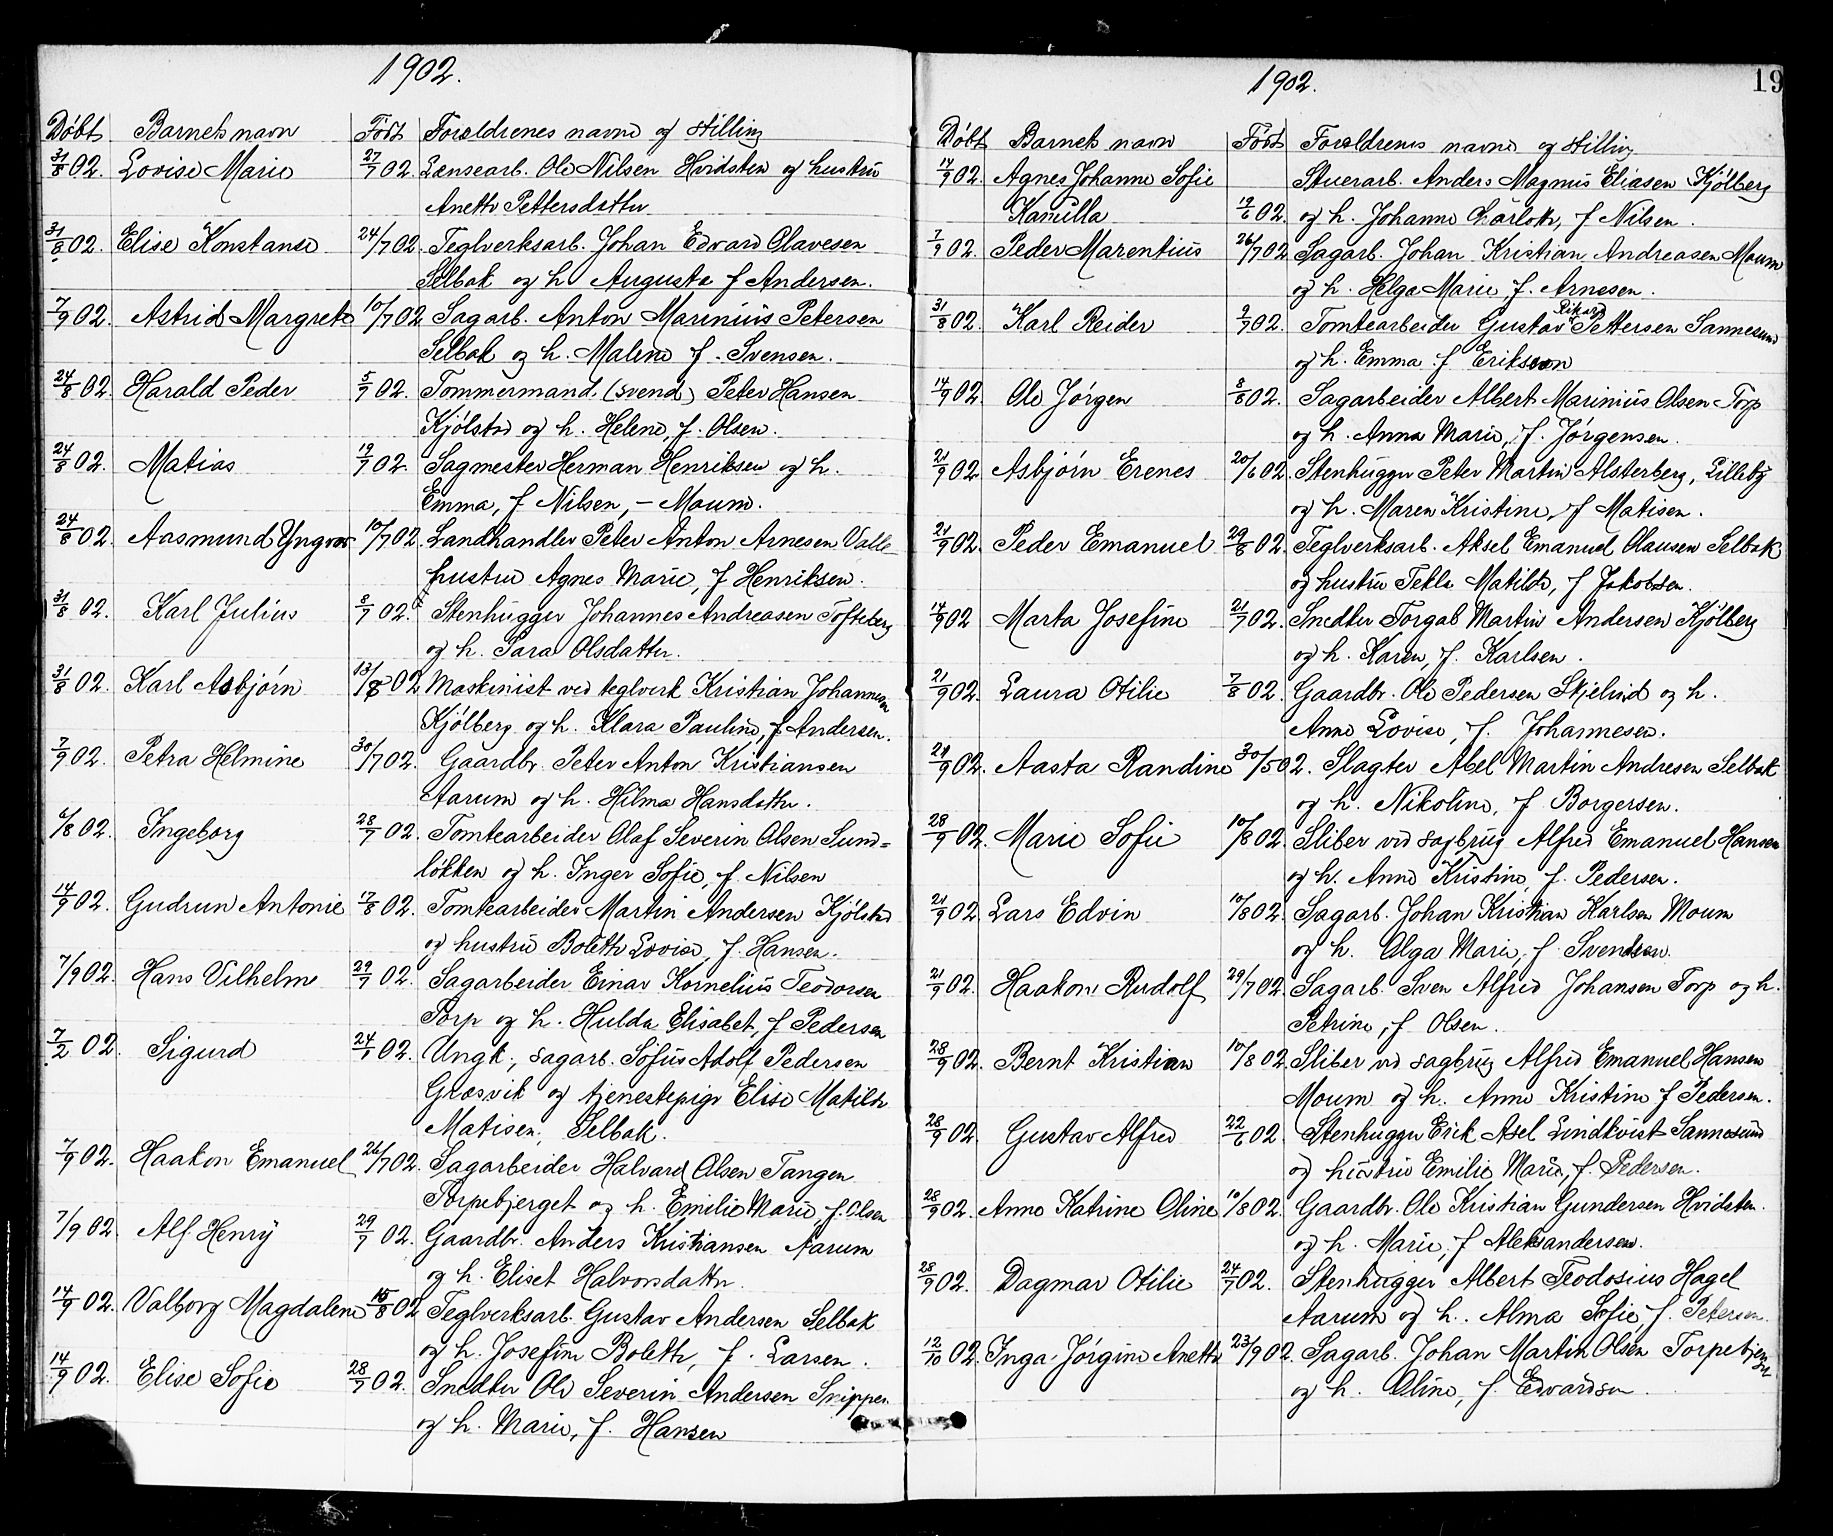 1902.
Døbt Barnets navn Født Forældrenes navne og stilling
31/8 02. Lovise Marie 27/7 02. Lænsearb. Ole Nilsen Hvidsten og hustru
Anette Pettersdatter
31/8 02. Elise Konstanse 24/7 02. Teglverksarb. Johan Edvard Olavesen
Selbak og h. Augusta f Andersen.
7/9 02. Astrid Margrete 10/7 02 Sagarb. Anton Marinius Petersen
Selbak og h. Malene f. Svensen.
24/8 02. Harald Peder 5/7 02. Tommermand (svend) Peter Hansen
Kjølstad og h. Helene, f. Olsen.
24/8 02. Matias 19/7 02. Sagmester Herman Henriksen og h.
Emma, f Nilsen, – Moum.
24/8 02. Aasmund Yngvar 10/7 02. Landhandler Peter Anton Arnesen Valle
hustru Agnes Marie, f Henriksen.
31/8 02. Karl Julius 8/7 02. Stenhugger Johannes Andreasen Tofteberg
og h. Sara Olsdatter.
31/8 02. Karl Asbjørn 13/8 02 Maskinist ved teglverk Kristian Johannesen
Kjølberg og h. Klara Pauline, f Andersen.
7/9 02. Petra Helmine 30/7 02. Gaardbr. Peter Anton Kristiansen
Aarum og h. Hilma Hansdatter.
6/8 02. Ingeborg 28/7 02. Tomtearbeider Olaf Severin Olsen Sund=
løkken og h. Inger Sofie, f. Nilsen
14/9 02. Gudrun Antonie 17/8 02. Tomtearbeider Martin Andersen Kjølstad
og hustru Bolette Lovise, f. Hansen.
7/9 02. Hans Vilhelm 29/7 02. Sagarbeider Einar Kornelius Teodorsen
Torp og h. Hulda Elisabet, f Pedersen
7/2 02. Sigurd 24/1 02. Ungk., sagarb. Sofus Adolf Pedersen
Græsvik og tjenestepige Elise Matilde
Matisen, Selbak.
7/9 02. Haakon Emanuel 26/7 02. Sagarbeider Halvard Olsen Tangen
Torpebjerget og h. Emilie Marie, f. Olsen
7/9 02. Alf Henry 29/7 02. Gaardbr. Anders Kristiansen Aarum
og h. Eliset Halvorsdatter.
14/9 02. Valborg Magdalene 15/8 02 Teglverksarb. Gustav Andersen Selbak
og h. Josefine Bolette, f. Larsen.
14/9 02. Elise Sofie 28/7 02. Snedker Ole Severin Andersen Skipper
og h. Marie, f. Hansen
1902.
19
Døbt Barnets navn Født Forældrenes navne og stilling
14/9 02. Agnes Johanne Sofie Stuerarb. Anders Magnus Eliasen Kjølberg
Kamilla 19/6 02. og h. Johanne Carlotte, f Nilsen.
7/9 02. Peder Marentius 26/7 02 Sagarb. Johan Kristian Andreasen Moum
og h. Helga Marie f. Arnesen.
31/8 02. Karl Reidar 9/7 02. Tomtearbeider Gustav Rikard Pettersen Sannesund
og h. Emma f Erikson
14/9 02. Ole Jørgen 8/8 02. Sagarbeider Albert Marinius Olsen Torp
og h. Anna Marie, f. Jørgensen.
21/9 02. Asbjørn Erenes 20/6 02. Stenhugger Peter Martin Alsterberg, Lilleby
og h. Maren Kristine, f Matisen.
21/9 02. Peder Emanuel 29/8 02. Teglverksarb. Aksel Emanuel Olausen Selbak
og hustru Tekla Matilde, f Jakobsen.
14/9 02 Marta Josefine 21/7 02. Snedker Torgal Martin Andersen Kjølberg
og h. Karen, f. Karlsen.
21/9 02. Laura Otilie 7/8 02. Gaardbr. Ole Pedersen Skjelind og h.
Anne Lovise, f. Johannesen.
21/9 02. Aasta Randine 30/5 02. Slagter Abel Martin Andresen Selbak
og h. Nikoline, f Borgersen.
28/9 02. Marie Sofie 10/8 02. Sliber ved sagbrug Alfred Emanuel Hansen
og h. Anne Kristine, f. Pedersen.
21/9 02 Lars Edvin 10/8 02. Sagarb. Johan Kristian Karlsen Moum
og h. Olga Marie, f. Svendsen.
21/9 02. Haakon Rudolf 29/7 02. Sagarb. Sven Alfred Johansen Torp og h.
Petrine, f Olsen.
28/9 02. Bernt Kristian 10/8 02 Sliber ved sagbrug Alfred Emanuel Hansen
Moum og h. Anne Kristine f Pedersen.
28/9 02. Gustav Alfred 22/6 02. Stenhugger Erik Axel Lindkvist Sannesund
og hustru Emilie Marie, f. Pedersen.
28/9 02. Anne Katrine Oline 10/8 02. Gaardbr. Ole Kristian Gundersen Hvidsten.
og h. Marie, f Aleksandersen.
28/9 02. Dagmar Otilie 24/7 02. Stenhugger Albert Teodosius Hagel
Aarum og h. Alma Sofie, f. Petersen.
12/10 02. Inga Jørgine Anette 23/9 02. Sagarb. Johan Martin Olsen Torpebjerget
og h. Oline, f. Edvardsen.